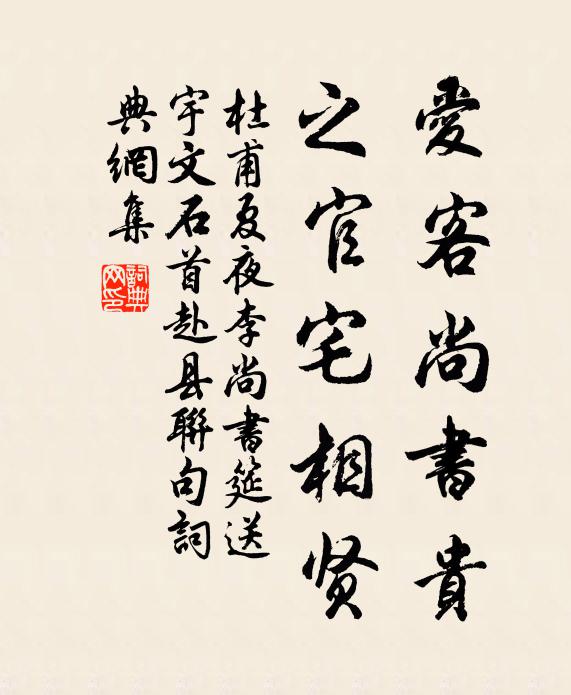 愛客尚書貴
之官宅相贤
杜甫夏夜李尚書筵送
宇文石首赴县聯句詞
典網集
詞典网印